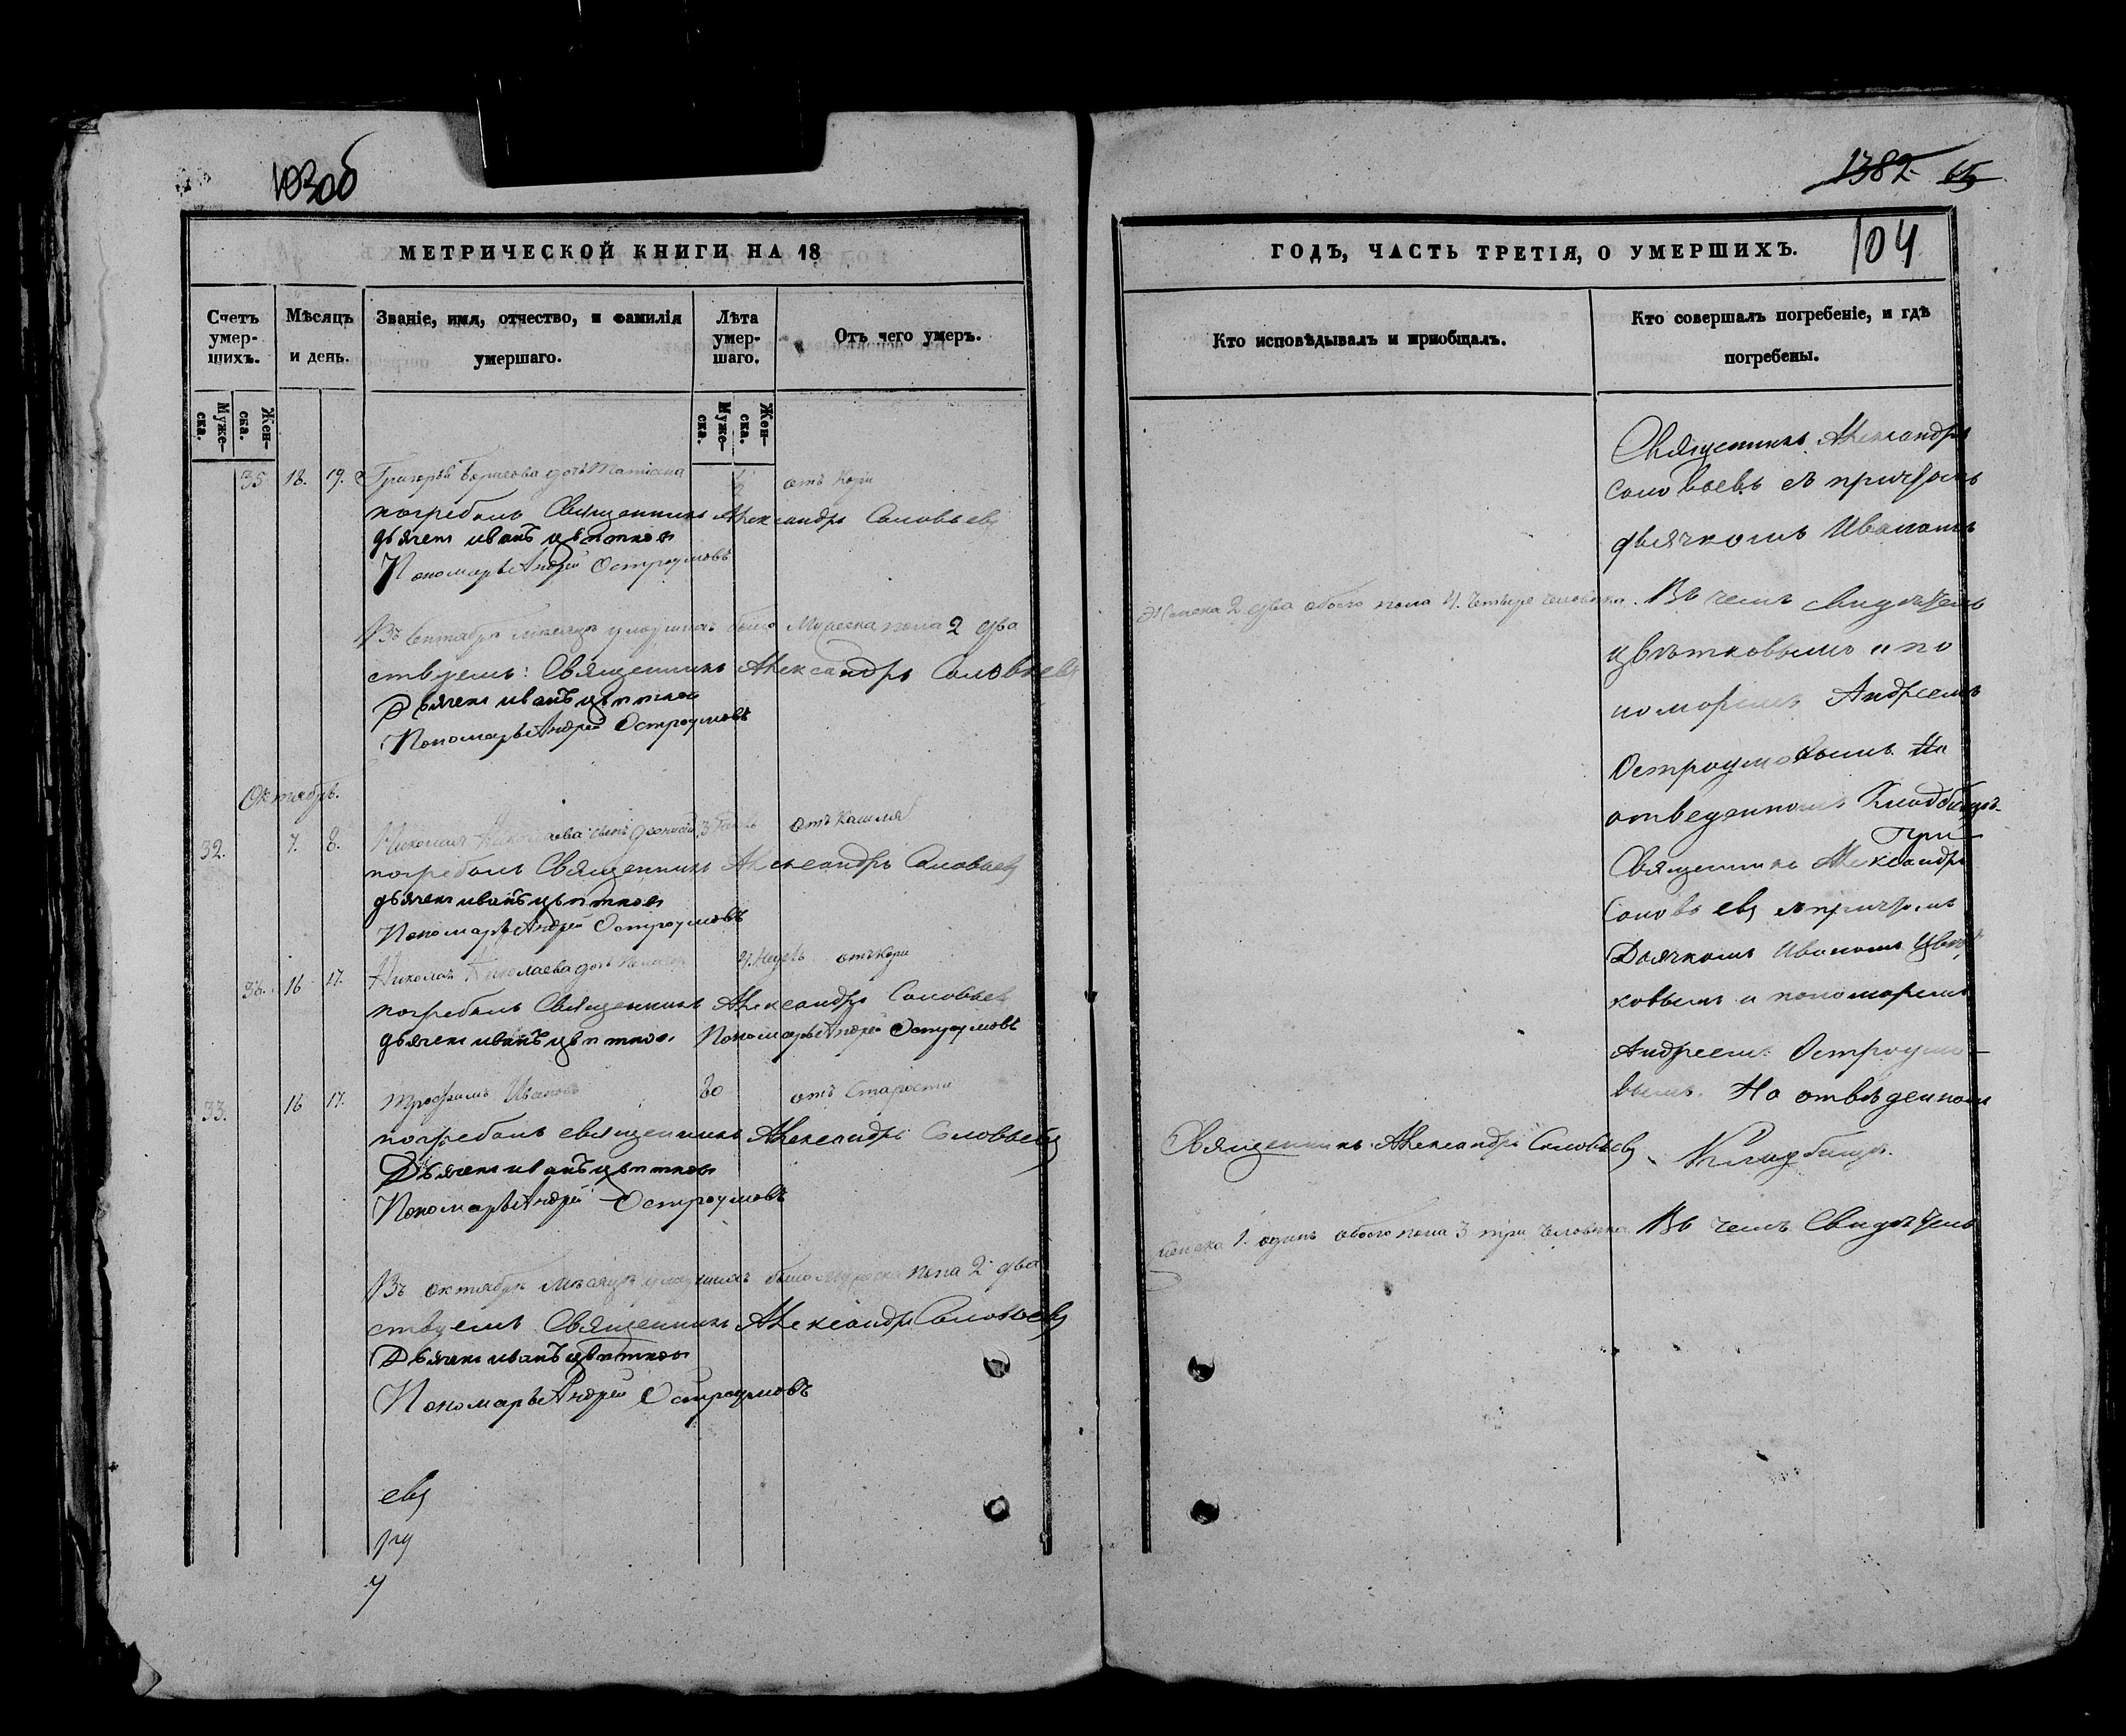 103об
МЕТРИЧЕСКОЙ КНИГИ НА 18
Счетъ умер-шихъ.
Мѣсяцъ и день.
Званіе, имя, отчество, и фамилія умершаго.
Лѣта умер-шаго.
Отъ чего умеръ.
Муже-ска.
Жен-ска.
Муже-ска.
Жен-ска.
35 18. 19. Григорья Борисова дочь Татіана отъ Кори
погребалъ Священникъ Александръ Соловьевъ
дьячекъ иванъ цвѣтков
Пономарь Андрей Остроумовъ
Въ Сентябрѣ мѣсяцѣ умершихъ было Мужеска пола 2 два
ствуемъ: Священникъ Александръ Соловьевъ
Дьячекъ иванъ цвѣтков
Пономарь Андрей Остроумовъ
Октябрь.
32. 7. 8. Николая Николаева сынъ отъ Кашля
погребалъ Священникъ Александръ Соловьевъ
дьячекъ иванъ цвѣтков
Пономарь Андрей Остроумовъ
36. 16 17. Николая Николаева дочь 4. Недѣль отъ Кори
погребалъ Священникъ Александръ Соловьевъ
дьячекъ иванъ цвѣтков Пономарь Андрей Остроумовъ
33. 16 17. Трофимъ Ивановъ 80 отъ Старости
погребалъ священникъ Александръ Соловьевъ
Дьячекъ иванъ цвѣтков
Пономарь Андрей Остроумовъ
Въ октябрѣ мѣсяцѣ умершихъ было мужеска пола 2 два
ствуемъ Священникъ Александръ Соловьевъ
Дьячекъ иванъ цвѣтков
Пономарь Андрей Остроумовъ
евъ
у
1382 65
ГОДЪ, ЧАСТЬ ТРЕТІЯ, О УМЕРШИХЪ.
104
Кто исповѣдывалъ и пріобщалъ.
Кто совершалъ погребеніе, и гдѣ погребены.
Священникъ Александръ
Соловьевъ съ причтомъ
дьячкомъ Иваномъ
Женска 2 два обоего пола 4. Четыре человѣка. Въ чемъ свидѣтель
цвѣтковымъ и по
номоремъ Андреемъ
Остроумовымъ На
отведенномъ Кладбищѣ
Священникъ Александръ
Соловьевъ съ причтомъ
Дьячкомъ Иваномъ Цвѣт
ковымъ и пономоремъ
Андреемъ Остроумо-
вымъ. На отвѣденномъ
Священникъ Александръ Соловьевъ Кладбищѣ.
Женска 1. одинъ обоего пола 3 три человѣка. Въ чемъ Свидѣтель